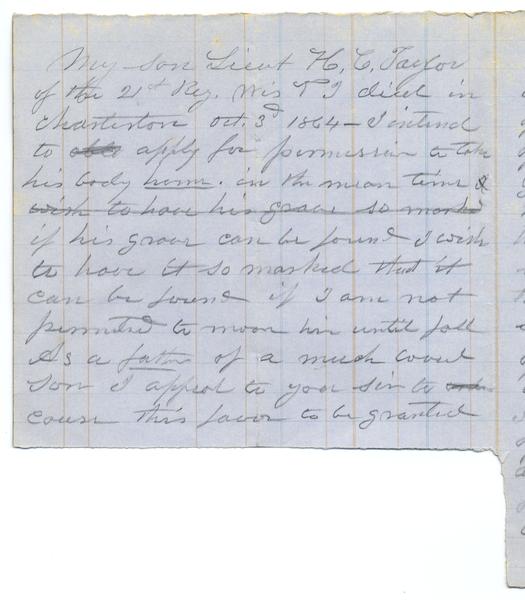 My son Lieut H. C. Taylor
of the 21st Reg. Wis V I died in
Charleston Oct. 3d 1864 - I intend
to apply for permission to take
his body home. in the mean time I
wish to have his grave so marked
if his grave can be found I wish
to have it so marked that it
can be found if I am not
permitted to move him until fall
As a father of a much loved
Son I appeal to you sir to
cause this favor to be granted